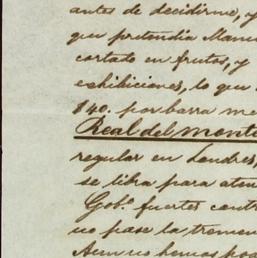 antes de decidirme, y
que pretendia Manu
cortado en frutos, y
exhibiciones, lo que
$40. por barra me
Real del Monte
regular en Londres,
se libra para aten
Gob.º fuertes cont
no pase la tremen
Aun no hemos pod